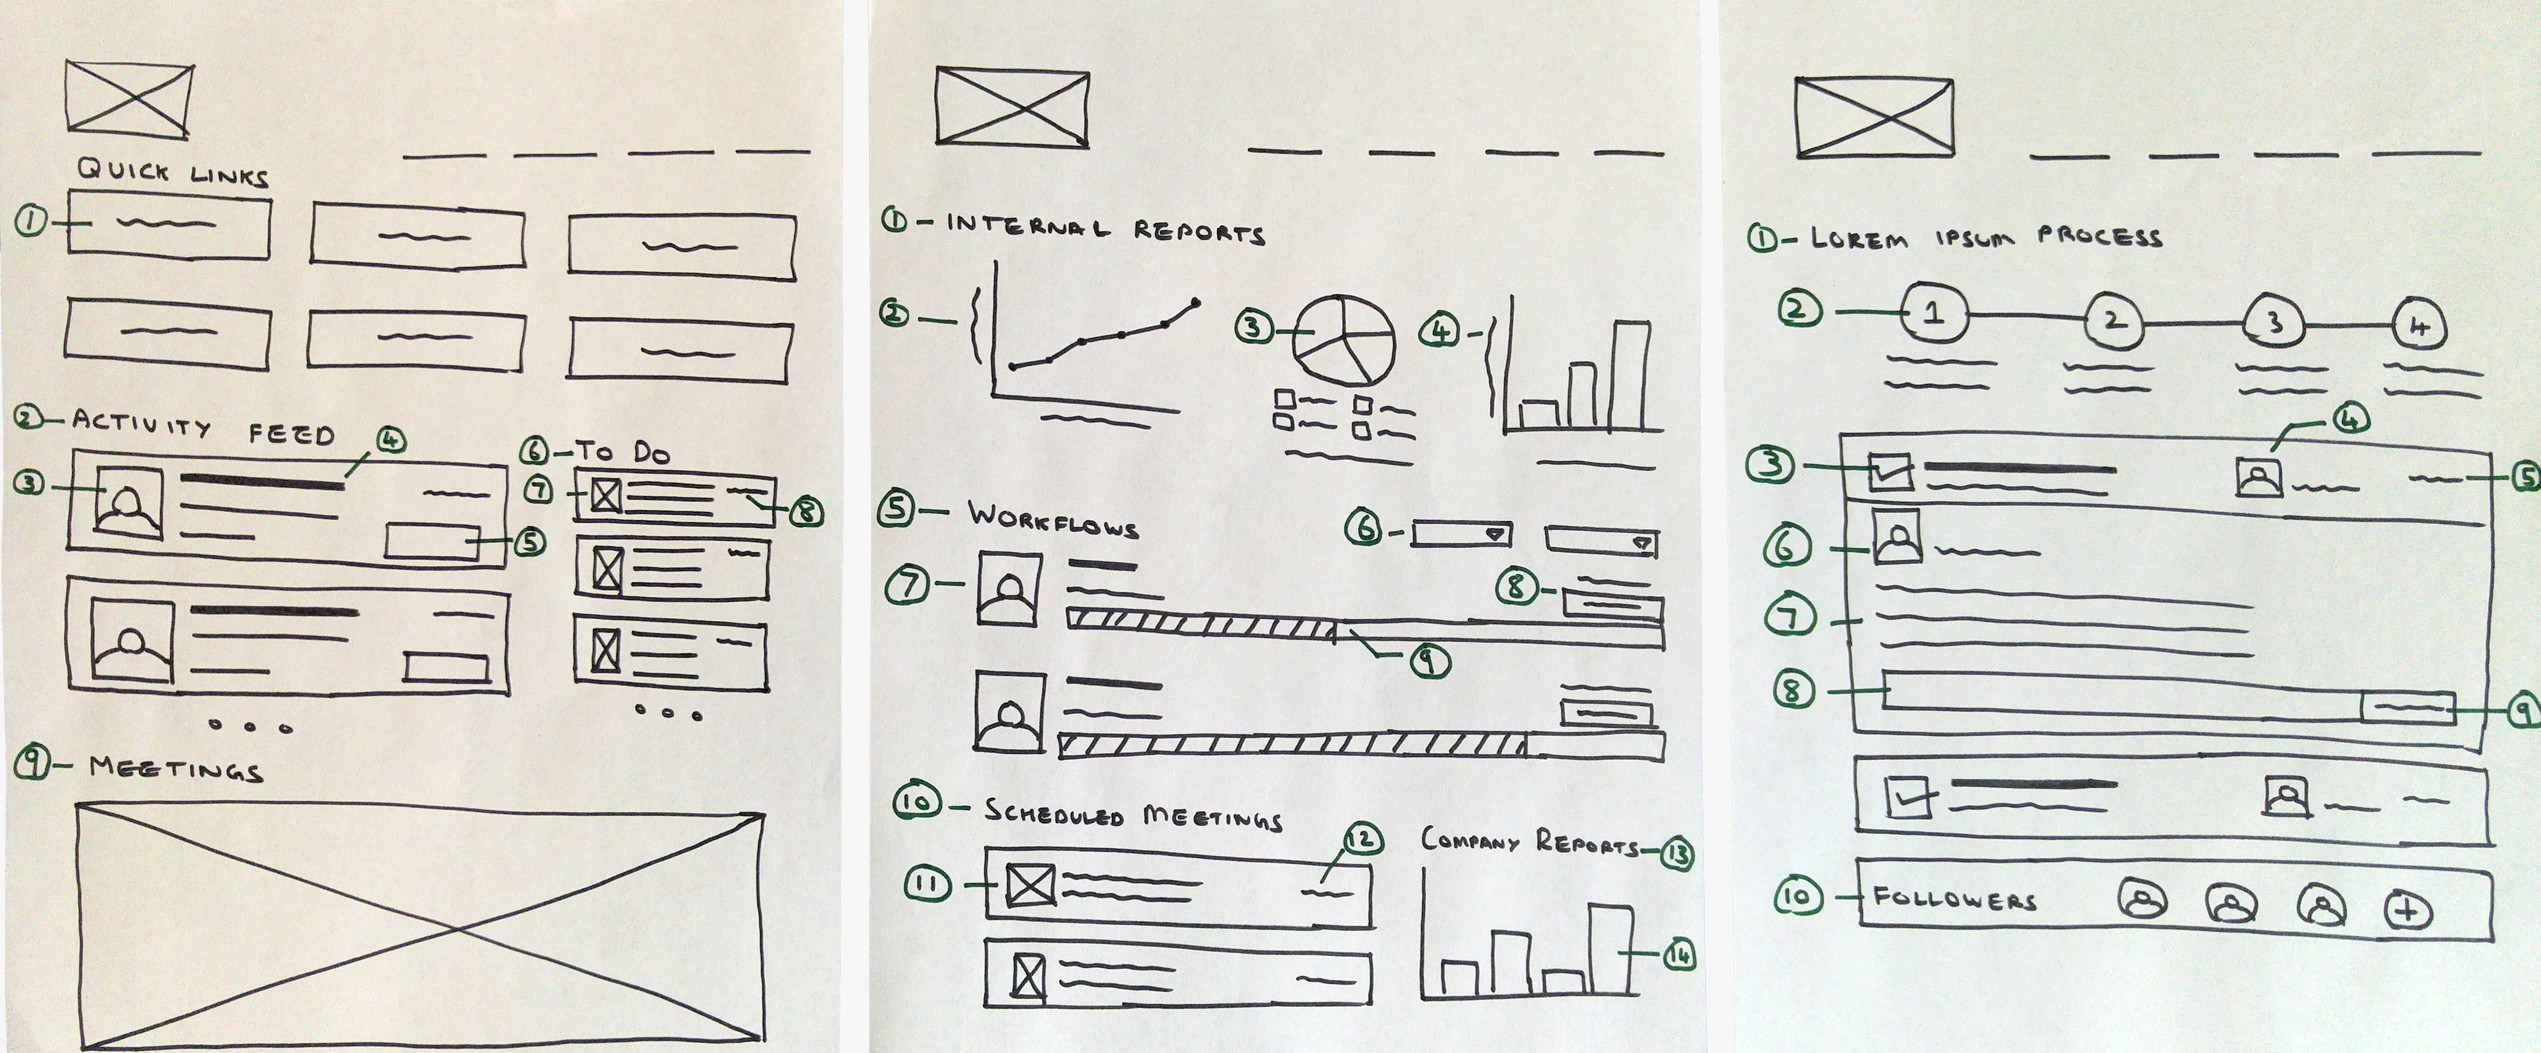 QUICK LINKS
1
2 ACTIVITY FEED
4
3
5
6 TO DO
7
8
9 MEETINGS
1 INTERNAL REPORTS
2
3
4
5 WORKFLOWS
6
7
8
9
10 SCHEDULED MEETINGS
11
12
COMPANY REPORTS 13
14
1 LOREM IPSUM PROCESS
2
1
2
3
4
3
4
5
6
7
8
9
10 FOLLOWERS